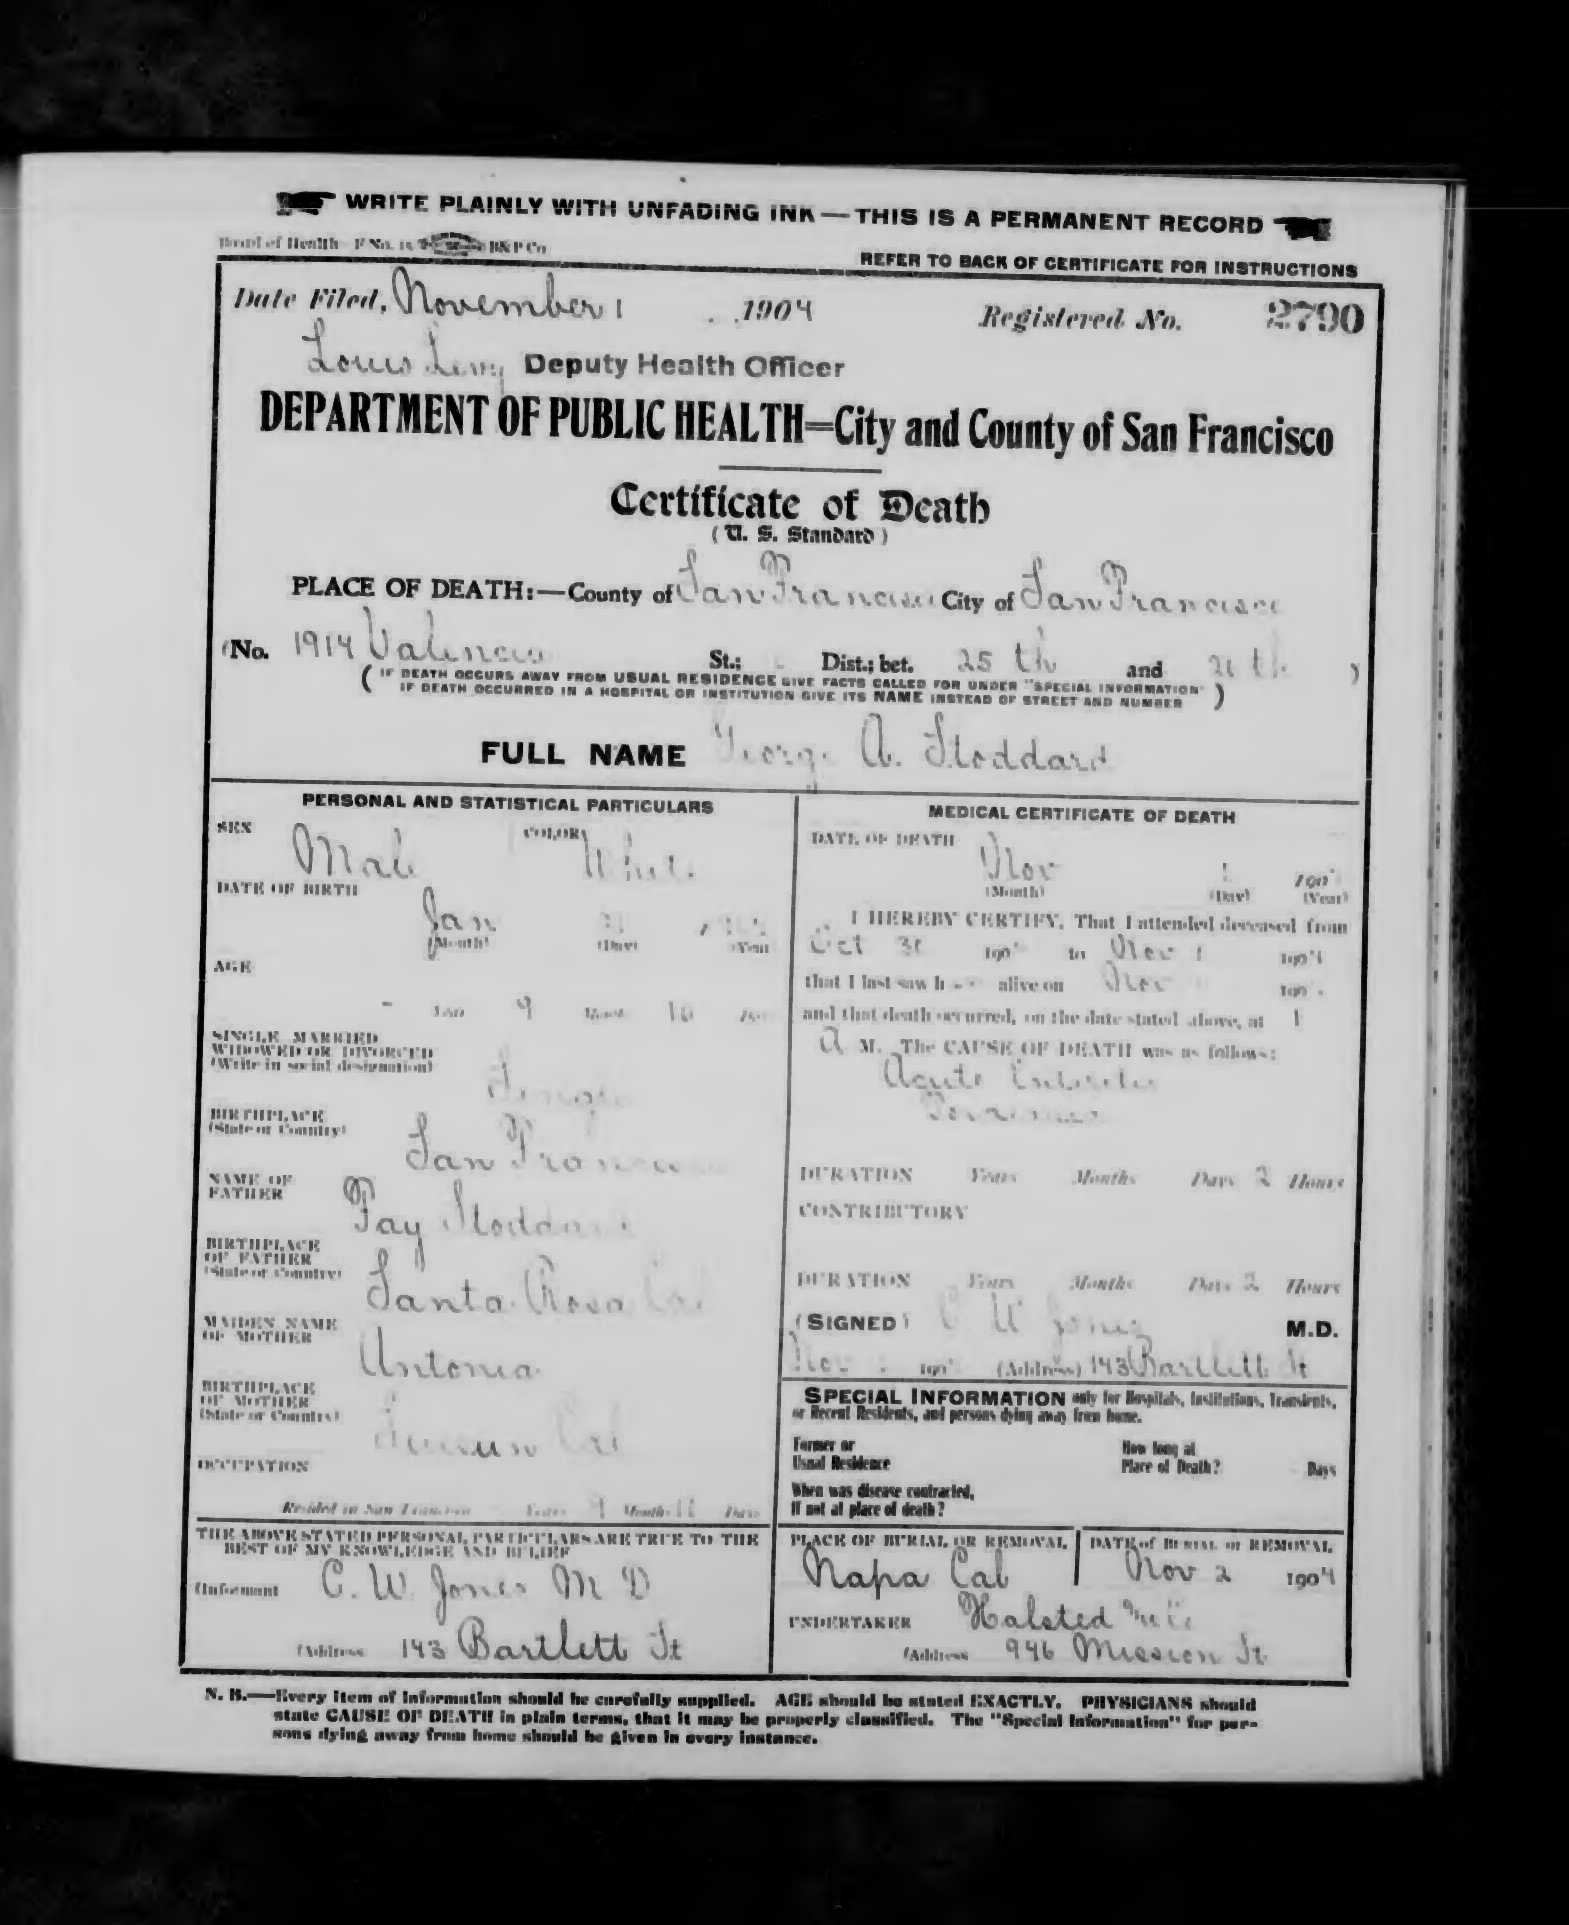 WRITE PLAINLY WITH UNFADING INK — THIS IS A PERMANENT RECORD
Board of Health F No. 15 B&P Co
REFER TO BACK OF CERTIFICATE FOR INSTRUCTIONS
Date Filed, November 1 1904 Registered No. 2790
Louis Levy Deputy Health Officer
DEPARTMENT OF PUBLIC HEALTH=City and County of San Francisco
Certificate of Death
(U. S. Standard)
PLACE OF DEATH:—County of San Francisco City of San Francisco
(No. 1914 Valencia St.; Dist.; bet. 25 th and 26 th )
( IF DEATH OCCURS AWAY FROM USUAL RESIDENCE GIVE FACTS CALLED FOR UNDER "SPECIAL INFORMATION"
IF DEATH OCCURRED IN A HOSPITAL OR INSTITUTION GIVE ITS NAME INSTEAD OF STREET AND NUMBER )
FULL NAME George A. Stoddard
PERSONAL AND STATISTICAL PARTICULARS
SEX Male COLOR White
DATE OF BIRTH
Jan
(Month) (Day) (Year)
AGE
Years 9 Months 10 Days
SINGLE MARRIED
WIDOWED OR DIVORCED
(Write in social designation)
Single
BIRTHPLACE
(State or Country)
San Francisco
NAME OF
FATHER
Fay Stoddard
BIRTHPLACE
OF FATHER
(State or Country)
Santa Rosa Cal
MAIDEN NAME
OF MOTHER
Antonia
BIRTHPLACE
OF MOTHER
(State or Country)
Cal
OCCUPATION
Resided in San Francisco Years 9 Months Days
THE ABOVE STATED PERSONAL PARTICULARS ARE TRUE TO THE
BEST OF MY KNOWLEDGE AND BELIEF
(Informant C. W. Jones M D
(Address 143 Bartlett St
MEDICAL CERTIFICATE OF DEATH
DATE OF DEATH
Nov 1 190
(Month) (Day) (Year)
I HEREBY CERTIFY, That I attended deceased from
Oct 30 190 to Nov 1 1904
that I last saw h alive on Nov 190
and that death occurred, on the date stated above, at 1
A M. The CAUSE OF DEATH was as follows:
Acute
DURATION Years Months Days 2 Hours
CONTRIBUTORY
DURATION Years Months Days 2 Hours
(SIGNED) C W Jones M.D.
Nov 190 (Address) 143 Bartlett St
SPECIAL INFORMATION only for Hospitals, Institutions, Transients,
or Recent Residents, and persons dying away from home.
Former or
Usual Residence
How long at
Place of Death? Days
When was disease contracted,
If not at place of death?
PLACE OF BURIAL OR REMOVAL
Napa Cal
DATE of BURIAL or REMOVAL
Nov 2 1904
UNDERTAKER Halsted
(Address 946 Mission St
N. B.—Every item of information should be carefully supplied. AGE should be stated EXACTLY. PHYSICIANS should
state CAUSE OF DEATH in plain terms, that it may be properly classified. The "Special Information" for per-
sons dying away from home should be given in every instance.